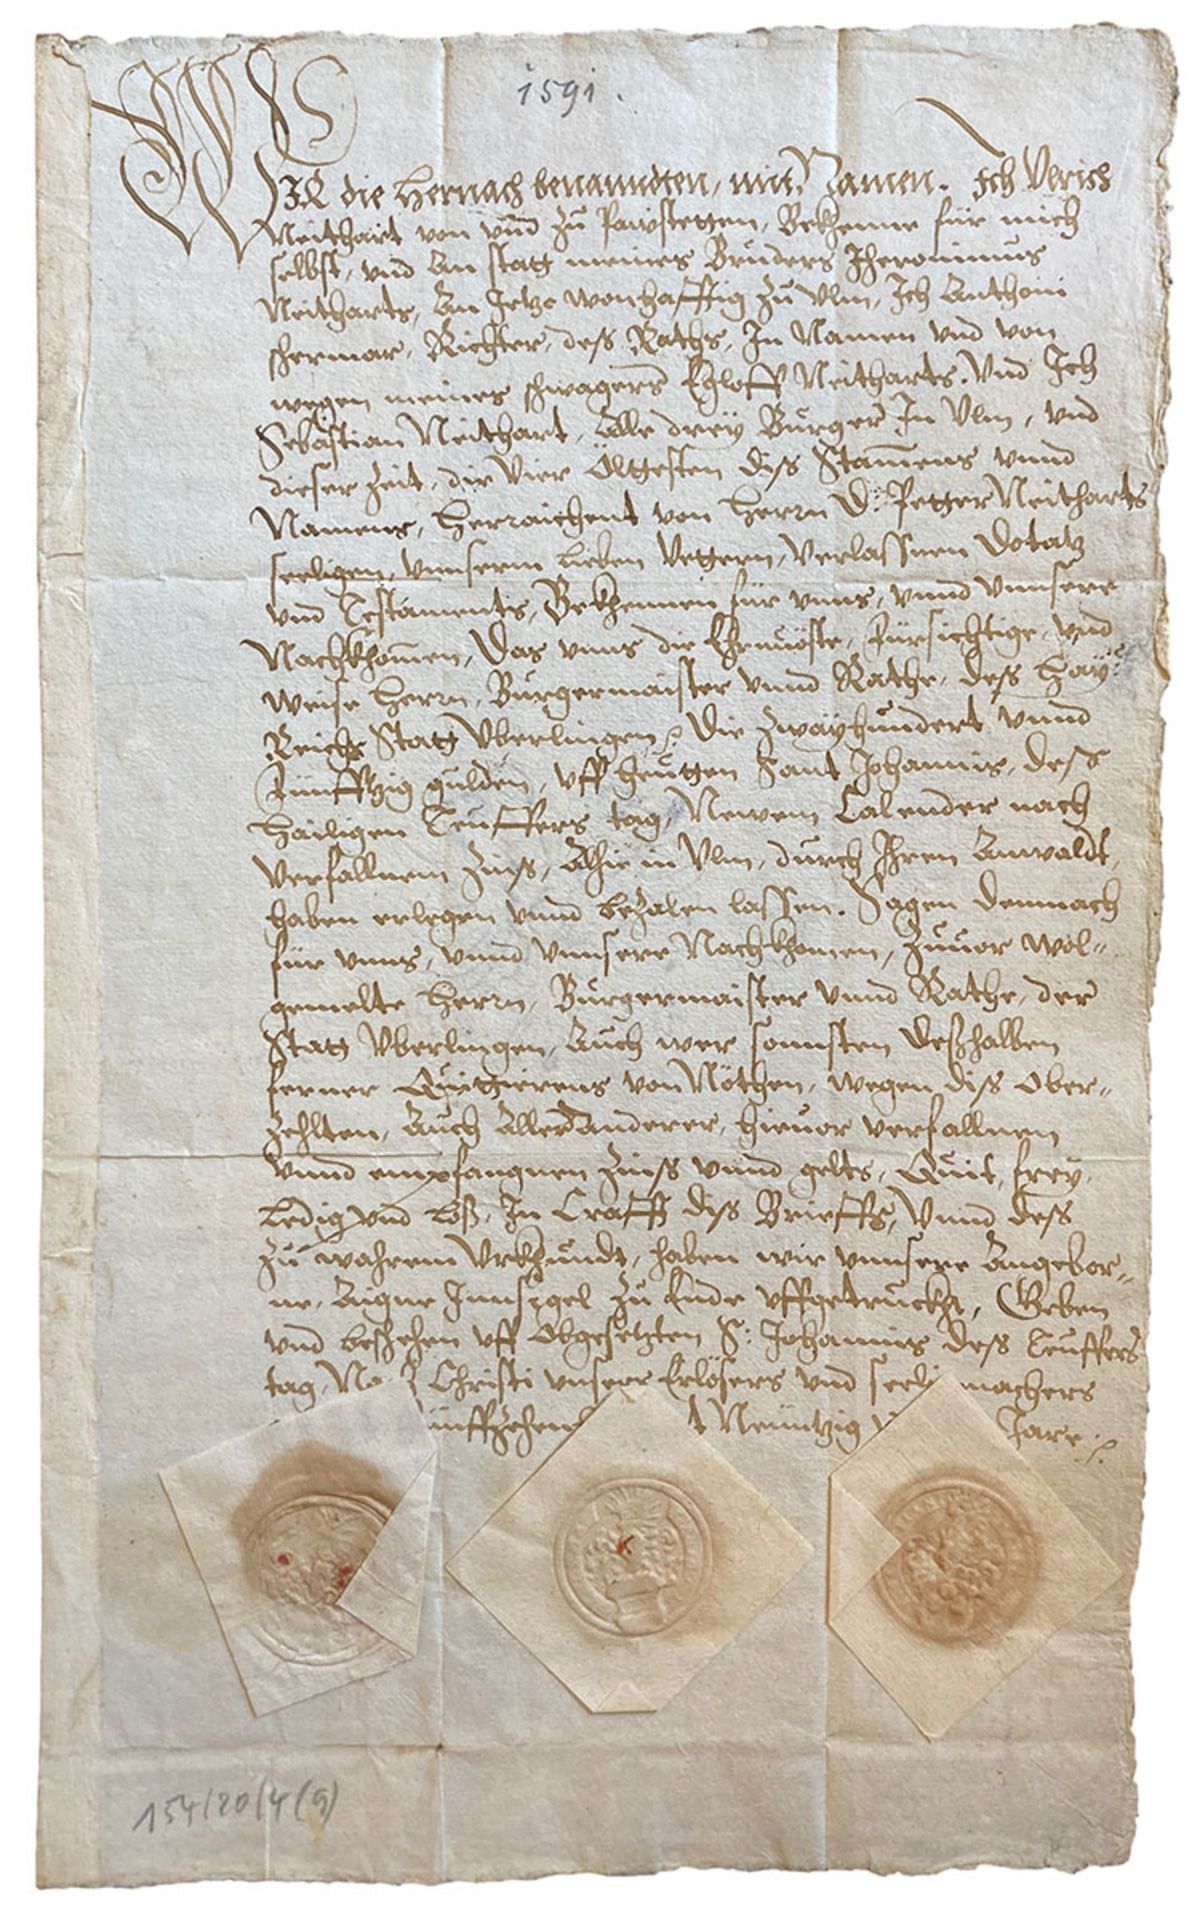 1591.
WIR die hernach benanndten, mit Namen. Ich Ulrich
Neithart von vnd zu Pawstetten, Bekhenne für mich
selbst, vnd An statt meines Bruders Iheronimus
Neitharts, An Jetzo wonhafftig zu Ulm, Ich Anthoni
schermar, Richter, deß Raths, In Namen vnd von
wegen meines schwagers Egloff Neitharts. Vnd Ich
Sebastian Neithart, Alle drey Burger In Ulm, vnd
dieser Zeit, die Vier Öltesten diß Stam̄ens vnnd
Namens, herraichent von herrn D: Petter Neitharts
seeligen, vnnserm lieben Vettern, Verlaßnen Dotatz
vnd Testaments, Bekhennen für vnns, vnnd vnnsere
Nachkhom̄en, Das vnns die Ehrnuöste, fürsichtige, vnd
Weise herrn, Burgermaister vnnd Rathe, deß hay:
Reichs Statt Vberlingen, Die Zwayhundert vnnd
fünfftzig gulden, vff heutten Sant Johannis, deß
hailigen Teuffers tag, Newem Calender nach
Verfallnem Zinß, Alhie in Ulm, durch Ihren Anwaldt,
haben erlegen vnnd bezalen lassen. Sagen demnach
für vnns, vnnd vnnsere Nachkhomen, Zuuor wol=
gemelte herrn, Burgermaister vnnd Rathe, der
Statt Vberlingen, Auch wer sonnsten deßhalben
ferner Quittierens von Nöthen, wegen diß Ober=
zehlten, Auch Aller Anderer, hieuor verfallnem
vnnd empfangnen Zinß vnnd gelts, Quit, frey,
Ledig vnd Loß, In Crafft diß Brieffs, Vnnd deß
Zu wahrem Vrkhundt, haben wir vnnsere Angebor=
ne, Aigne Innsigel Zu Ende vffgetruckht, Geben
vnd beschehen vff Obgesetzten S: Johannis deß Teuffers
tag, Christi vnsers Erlösers vnd machers
Neuntzig Jare.
154/20/4(9)